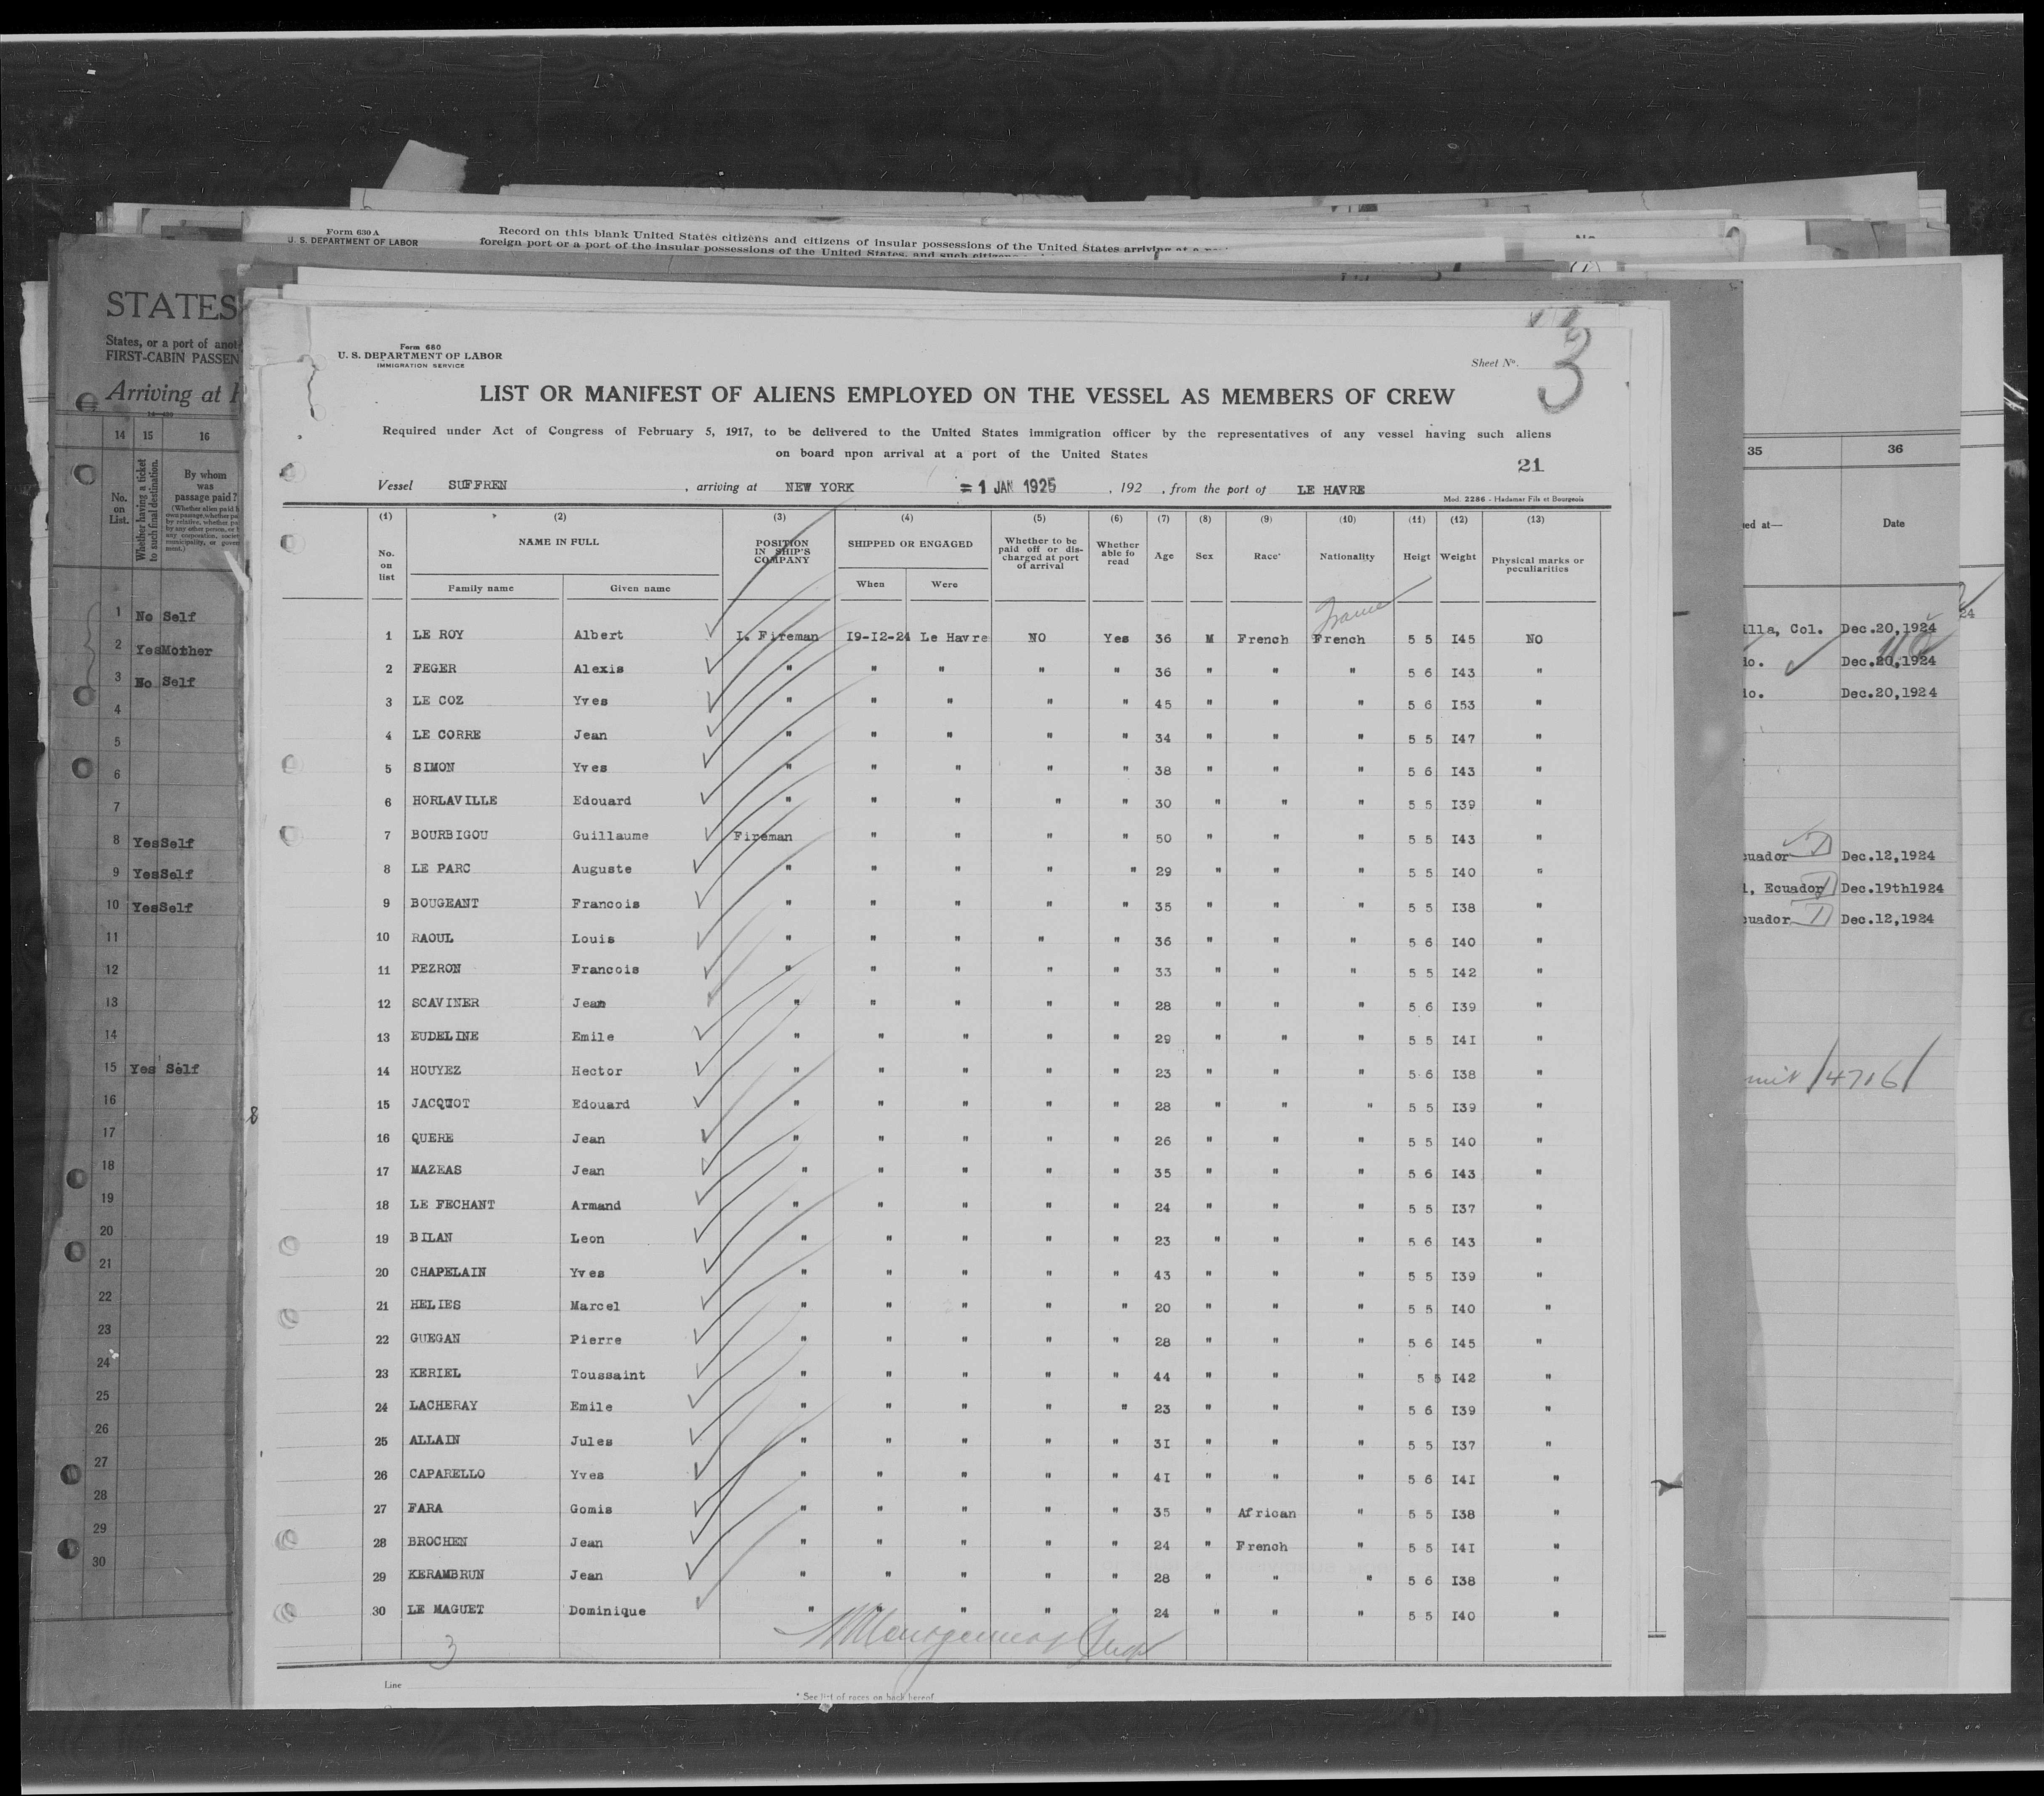 Form 630 A
U. S. DEPARTMENT OF LABOR
Record on this blank United States citizens and citizens of insular possessions of the United States arriving at a
foreign port or a port of the insular possessions of the United States, and such citizens
STATES
States, or a port of anot
FIRST-CABIN PASSEN
Arriving at
14 15 16
No. on List.
Whether having a ticket to such final destination.
By whom was passage paid?
1 No Self
2 Yes Mother
3 No Self
4
5
6
7
8 Yes Self
9 Yes Self
10 Yes Self
11
12
13
14
15 Yes Self
16
17
18
19
20
21
22
23
24
25
26
27
28
29
30
Form 680
U. S. DEPARTMENT OF LABOR
IMMIGRATION SERVICE
Sheet No. 3
LIST OR MANIFEST OF ALIENS EMPLOYED ON THE VESSEL AS MEMBERS OF CREW
Required under Act of Congress of February 5, 1917, to be delivered to the United States immigration officer by the representatives of any vessel having such aliens
on board upon arrival at a port of the United States
21
Vessel SUFFREN , arriving at NEW YORK = 1 JAN 1925 , 192 , from the port of LE HAVRE
Mod. 2286 - Hadamar Fils et Bourgeois
(1) (2) (3) (4) (5) (6) (7) (8) (9) (10) (11) (12) (13)
No. on list
NAME IN FULL
Family name Given name
POSITION IN SHIP'S COMPANY
SHIPPED OR ENGAGED
When Were
Whether to be paid off or discharged at port of arrival
Whether able to read
Age Sex Race* Nationality Heigt Weight
Physical marks or peculiarities
France
1 LE ROY Albert I. Fireman I9-I2-24 Le Havre NO Yes 36 M French French 5 5 I45 NO
2 FEGER Alexis " " " " " 36 " " " 5 6 I43 "
3 LE COZ Yves " " " " " 45 " " " 5 6 I53 "
4 LE CORRE Jean " " " " " 34 " " " 5 5 I47 "
5 SIMON Yves " " " " " 38 " " " 5 6 I43 "
6 HORLAVILLE Edouard " " " " " 30 " " " 5 5 I39 "
7 BOURBIGOU Guillaume Fireman " " " " 50 " " " 5 5 I43 "
8 LE PARC Auguste " " " " " 29 " " " 5 5 I40 "
9 BOUGEANT Francois " " " " " 35 " " " 5 5 I38 "
10 RAOUL Louis " " " " " 36 " " " 5 6 I40 "
11 PEZRON Francois " " " " " 33 " " " 5 5 I42 "
12 SCAVINER Jean " " " " " 28 " " " 5 6 I39 "
13 EUDELINE Emile " " " " " 29 " " " 5 5 I4I "
14 HOUYEZ Hector " " " " " 23 " " " 5 6 I38 "
15 JACQUOT Edouard " " " " " 28 " " " 5 5 I39 "
16 QUERE Jean " " " " " 26 " " " 5 5 I40 "
17 MAZEAS Jean " " " " " 35 " " " 5 6 I43 "
18 LE FECHANT Armand " " " " " 24 " " " 5 5 I37 "
19 BILAN Leon " " " " " 23 " " " 5 6 I43 "
20 CHAPELAIN Yves " " " " " 43 " " " 5 5 I39 "
21 HELIES Marcel " " " " " 20 " " " 5 5 I40 "
22 GUEGAN Pierre " " " " " 28 " " " 5 6 I45 "
23 KERIEL Toussaint " " " " " 44 " " " 5 5 I42 "
24 LACHERAY Emile " " " " " 23 " " " 5 6 I39 "
25 ALLAIN Jules " " " " " 3I " " " 5 5 I37 "
26 CAPARELLO Yves " " " " " 4I " " " 5 6 I4I "
27 FARA Gomis " " " " " 35 " African " 5 5 I38 "
28 BROCHEN Jean " " " " " 24 " French " 5 5 I4I "
29 KERAMBRUN Jean " " " " " 28 " " " 5 6 I38 "
30 LE MAGUET Dominique " " " " " 24 " " " 5 5 I40 "
3
Line
* See list of races on back hereof
35 36
ed at— Date
illa, Col. Dec.20,1924
do. Dec.20,1924
do. Dec.20,1924
24
cuador Dec.12,1924
l, Ecuador Dec.19th1924
cuador Dec.12,1924